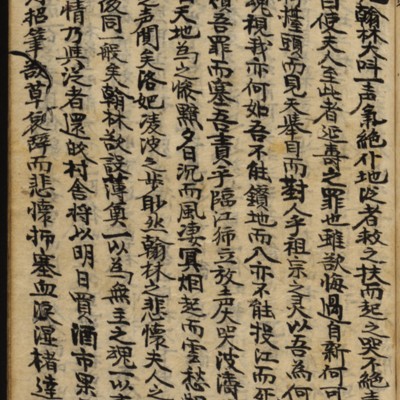 翰林大呌一声氣絶仆地從者救之扶而起之哭不絶声
曰使夫人至此者延壽之罪也雖欲悔過自新何可
擡頭而見天擧目而對人乎祖宗之灵以吾爲何
魂視我亦何如吾不能鑽地而入亦不能投江而死
償吾罪而塞吾責乎臨江獅立放声大哭波濤
天地爲之慘黯夕日沉而風凄冥烟起而雲愁
之声聞矣洛妃凌波之步耶然翰林之悲懷夫人之
後同一般矣翰林欲設薄奠一以爲無主之魂一以
情乃與從者還故村舍將以明日買酒市果
招筆欲草哀辭而悲懷捬塞血淚濕楮達